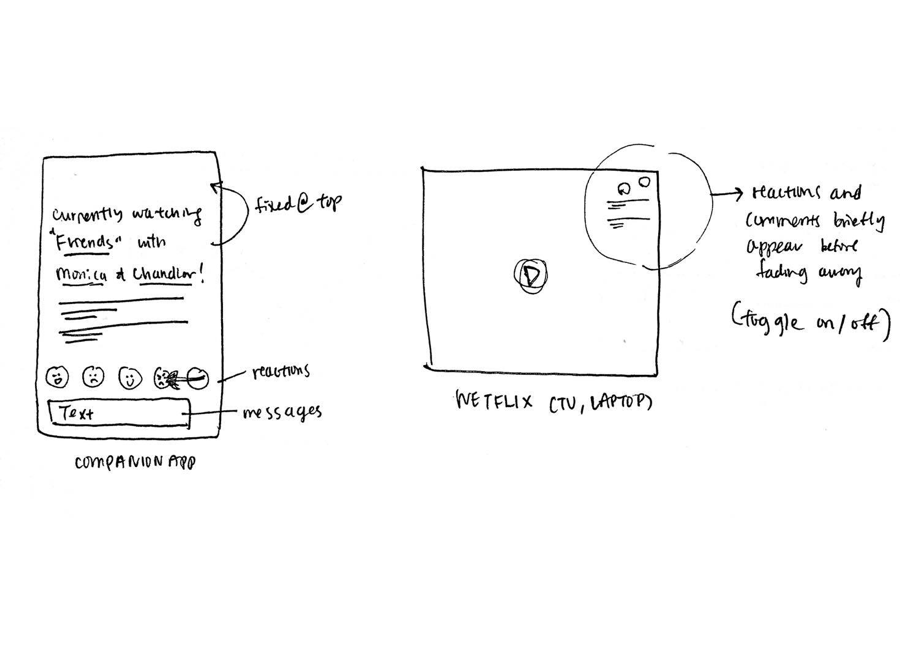 Currently watching
"Friends" with
Monica & Chandler!
fixed @ top
reactions
Text
messages
COMPANION APP
reactions and
comments briefly
appear before
fading away
(toggle on/off)
NETFLIX (TV, LAPTOP)